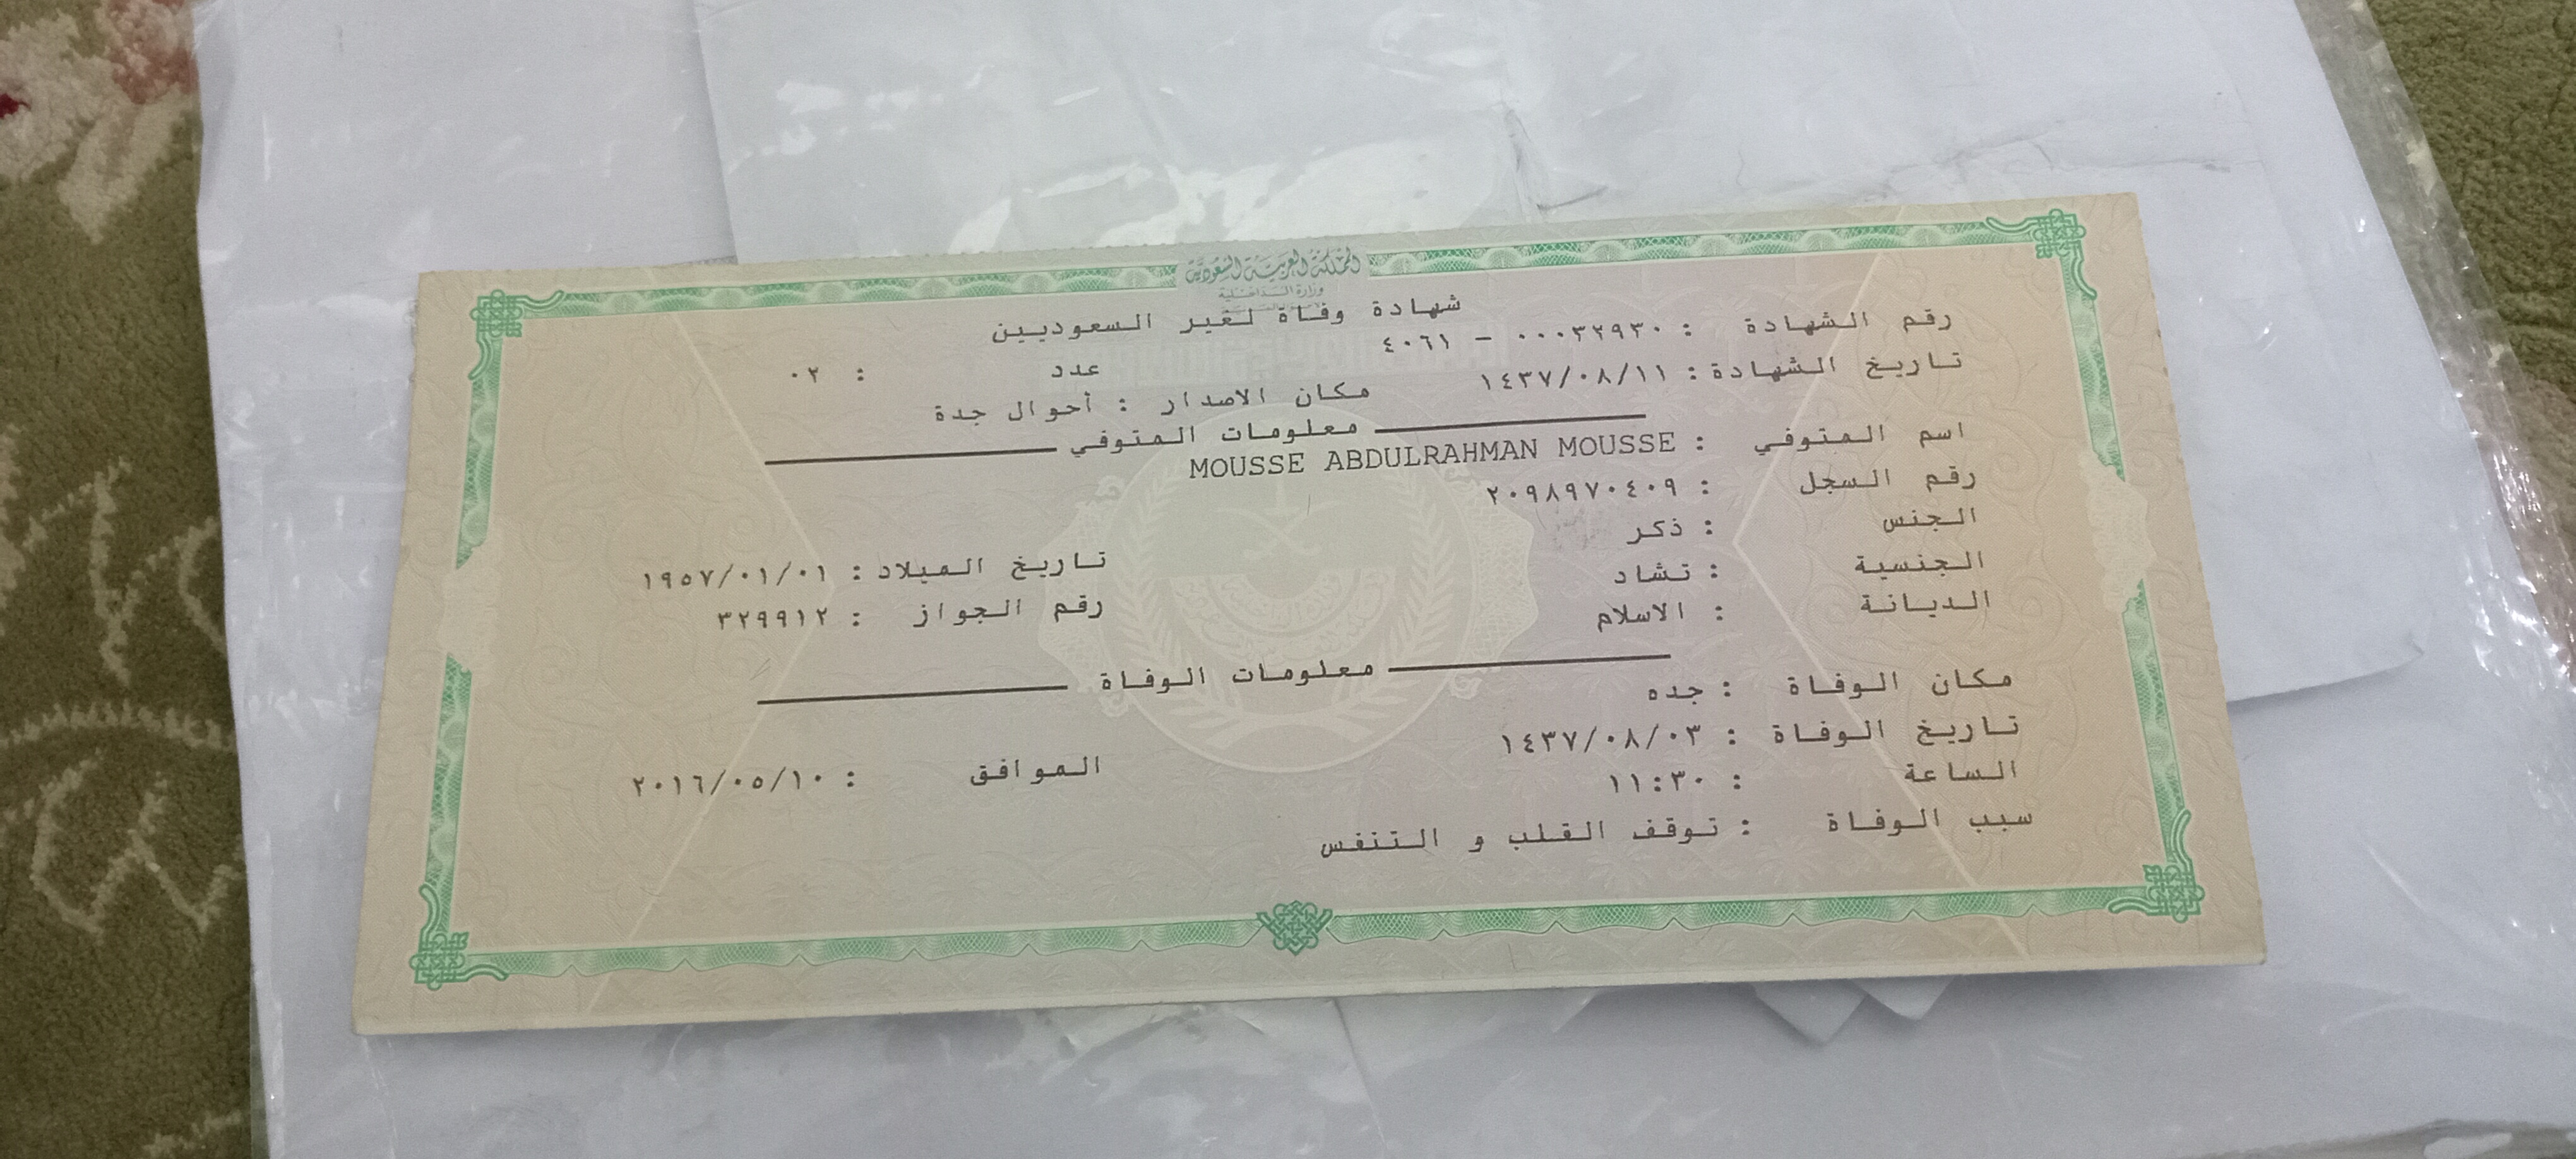 المملكة العربية السعودية
وزارة الداخلية
شهادة وفاة لغير السعوديين
رقم الشهادة : ٠٠٠٣٢٩٣٠ - ٤٠٦١
عدد : ٠٢
تاريخ الشهادة : ١٤٣٧/٠٨/١١
مكان الاصدار : أحوال جدة
معلومات المتوفي
اسم المتوفي : MOUSSE ABDULRAHMAN MOUSSE
رقم السجل : ٢٠٩٨٩٧٠٤٠٩
الجنس : ذكر
الجنسية : تشاد تاريخ الميلاد : ١٩٥٧/٠١/٠١
الديانة : الاسلام رقم الجواز : ٣٢٩٩١٢
معلومات الوفاة
مكان الوفاة : جده
تاريخ الوفاة : ١٤٣٧/٠٨/٠٣ الموافق : ٢٠١٦/٠٥/١٠
الساعة : ١١:٣٠
سبب الوفاة : توقف القلب و التنفس